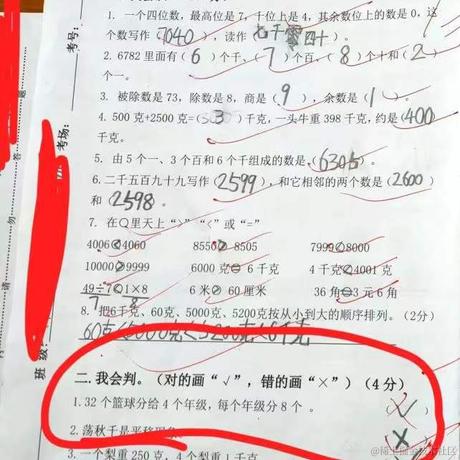 1. 一个四位数，最高位是7，千位上是4，其余数位上的数是0，这
个数写作(7040)，读作(七千零四十)
2. 6782里面有(6)个千、(7)个百、(8)个十和(2)
个一。
3. 被除数是73，除数是8，商是(9)，余数是(1)。
4. 500克+2500克=(3)千克，一头牛重398千克，约是(400)
千克。
5. 由5个一、3个百和6个千组成的数是(6305)。
6. 二千五百九十九写作(2599)，和它相邻的两个数是(2600)
和(2598)。
7. 在○里天上“>”“<”或“=”
4006<4060 8550>8505 7999<8000
10000>9999 6000克=6千克 4千克<4001克
49÷7<1×8 6米>60厘米 36角=3元6角
7 8
8. 把6千克、60克、5000克、5200克按从小到大的顺序排列。(2分)
60克<5000克<5200克<6千克
二.我会判。（对的画“√”，错的画“×”）(4分)
1. 32个篮球分给4个年级，每个年级分8个。 (√)
2. 荡秋千是平移现象 ×
3. 一个梨重250克，4个梨重1千克
考号:
考场:
班级:
@稀土掘金技术社区